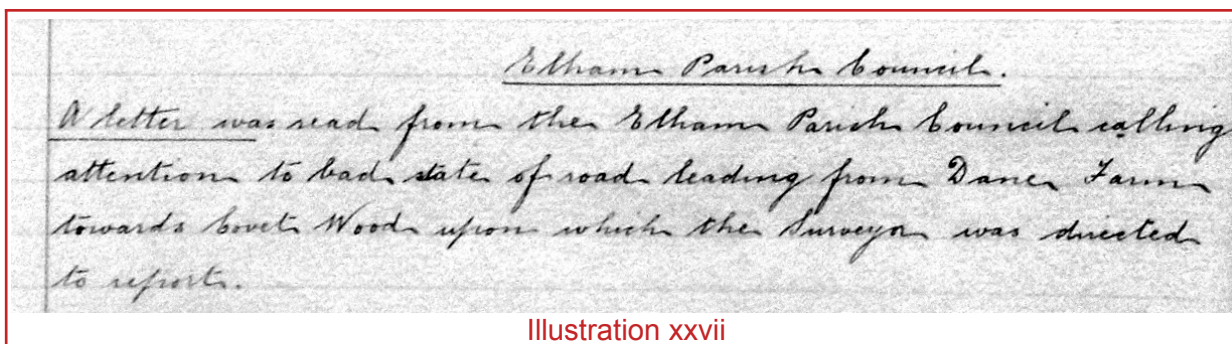 Elham Parish Council.
A letter was read from the Elham Parish Council calling
attention to bad state of road leading from Dane Farm
towards Covet Wood upon which the Surveyor was directed
to report.
Illustration xxvii